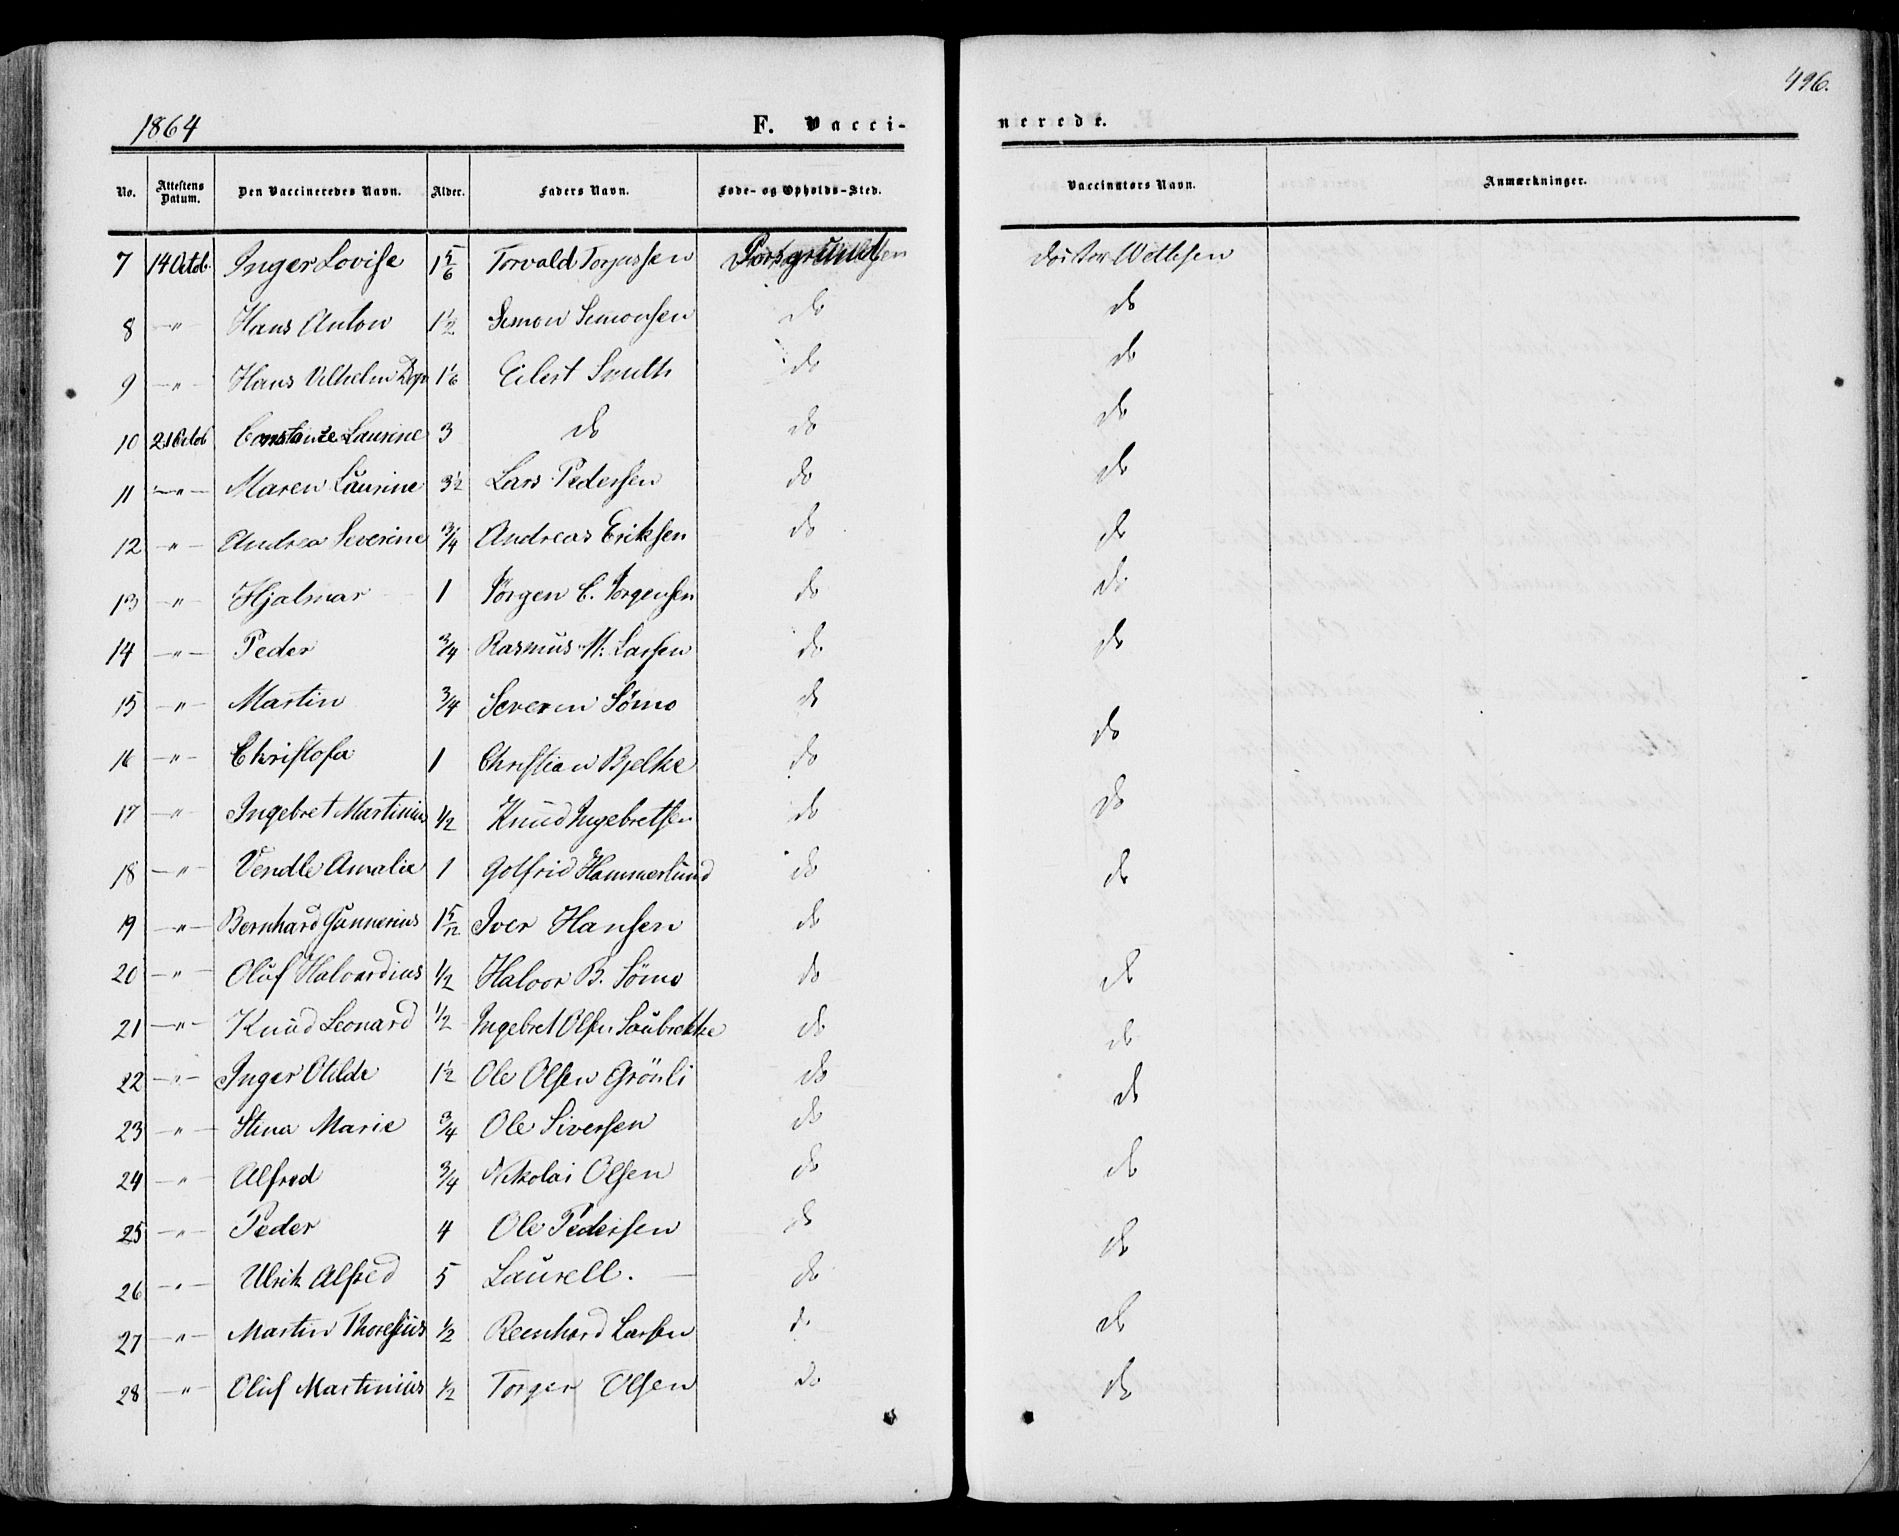 496.
1864 F. Vacci- nerede.
No. Attestens Datum. Den Vaccineredes Navn. Alder. Faders Navn. Føde- og Opholds-Sted. Vaccinators Navn. Anmærkninger.
7 14 Octob. Inger Lovise 1 5/6 Torvald Torjussen Porsgrund Doctor Wetlesen
8 -"- Hans Anton 1 1/2 Simon Simonsen do do
9 -"- Hans Vilhelm 1 1/6 Eilert Smith do do
10 21 Octob Constance Laurine 3 do do do
11 -"- Maren Laurine 3 1/2 Lars Pedersen do do
12 -"- Andrea Severine 3/4 Andreas Eriksen do do
13 -"- Hjalmar 1 Jörgen C. Jörgensen do do
14 -"- Peder 3/4 Rasmus M. Larsen do do
15 -"- Martin 3/4 Severin Sömo do
16 -"- Christofa 1 Christian Bjelke do do
17 -"- Ingebret Martinius 1/2 Knud Ingebretsen do do
18 -"- Vendle Amalie 1 Gotfrid Hammerlund do do
19 -"- Bernhard Gunnerius 1 5/12 Iver Hansen do
20 -"- Oluf Halvardius 1/2 Halvor B. Sömo do do
21 -"- Knud Leonard 1/2 Ingebret Olsen Saubrekke do do
22 -"- Inger Otilde 1 1/2 Ole Olsen Grönli do do
23 -"- Stina Marie 3/4 Ole Siversen do
24 -"- Alfred 3/4 Nikolai Olsen do do
25 -"- Peder 4 Ole Pedersen do do
26 -"- Ulrik Alfred 5 Laurell. do
27 -"- Martin Thoresius 1/2 Reinhard Larsen do do
28 -"- Oluf Martinius 1/2 Torger Olsen do do